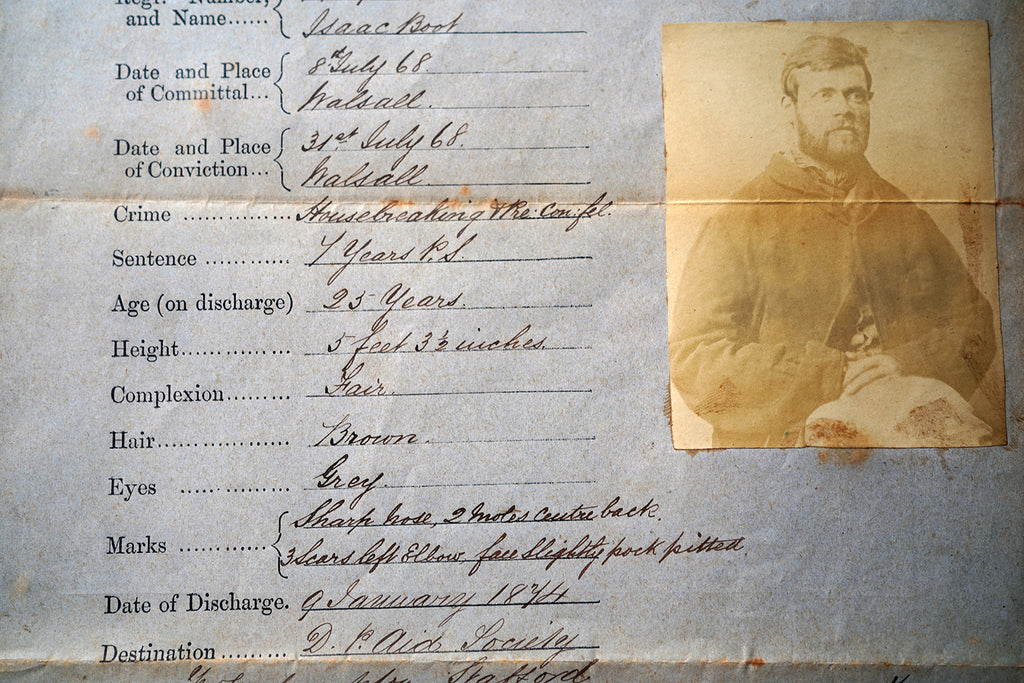 and Name...... Isaac Boot
Date and Place of Committal... 8th July 68.
Walsall.
Date and Place of Conviction... 31st July 68.
Walsall
Crime ............... Housebreaking & Pre: Con: fel.
Sentence ............ 7 Years P.S.
Age (on discharge) 25 Years.
Height............... 5 feet 3½ inches.
Complexion......... Fair.
Hair.................. Brown.
Eyes .................. Grey.
Marks ............ Sharp nose, 2 moles centre back.
3 Scars left Elbow, face slightly pock pitted.
Date of Discharge. 9 January 1874
Destination ......... D. P. Aid Society
Stafford